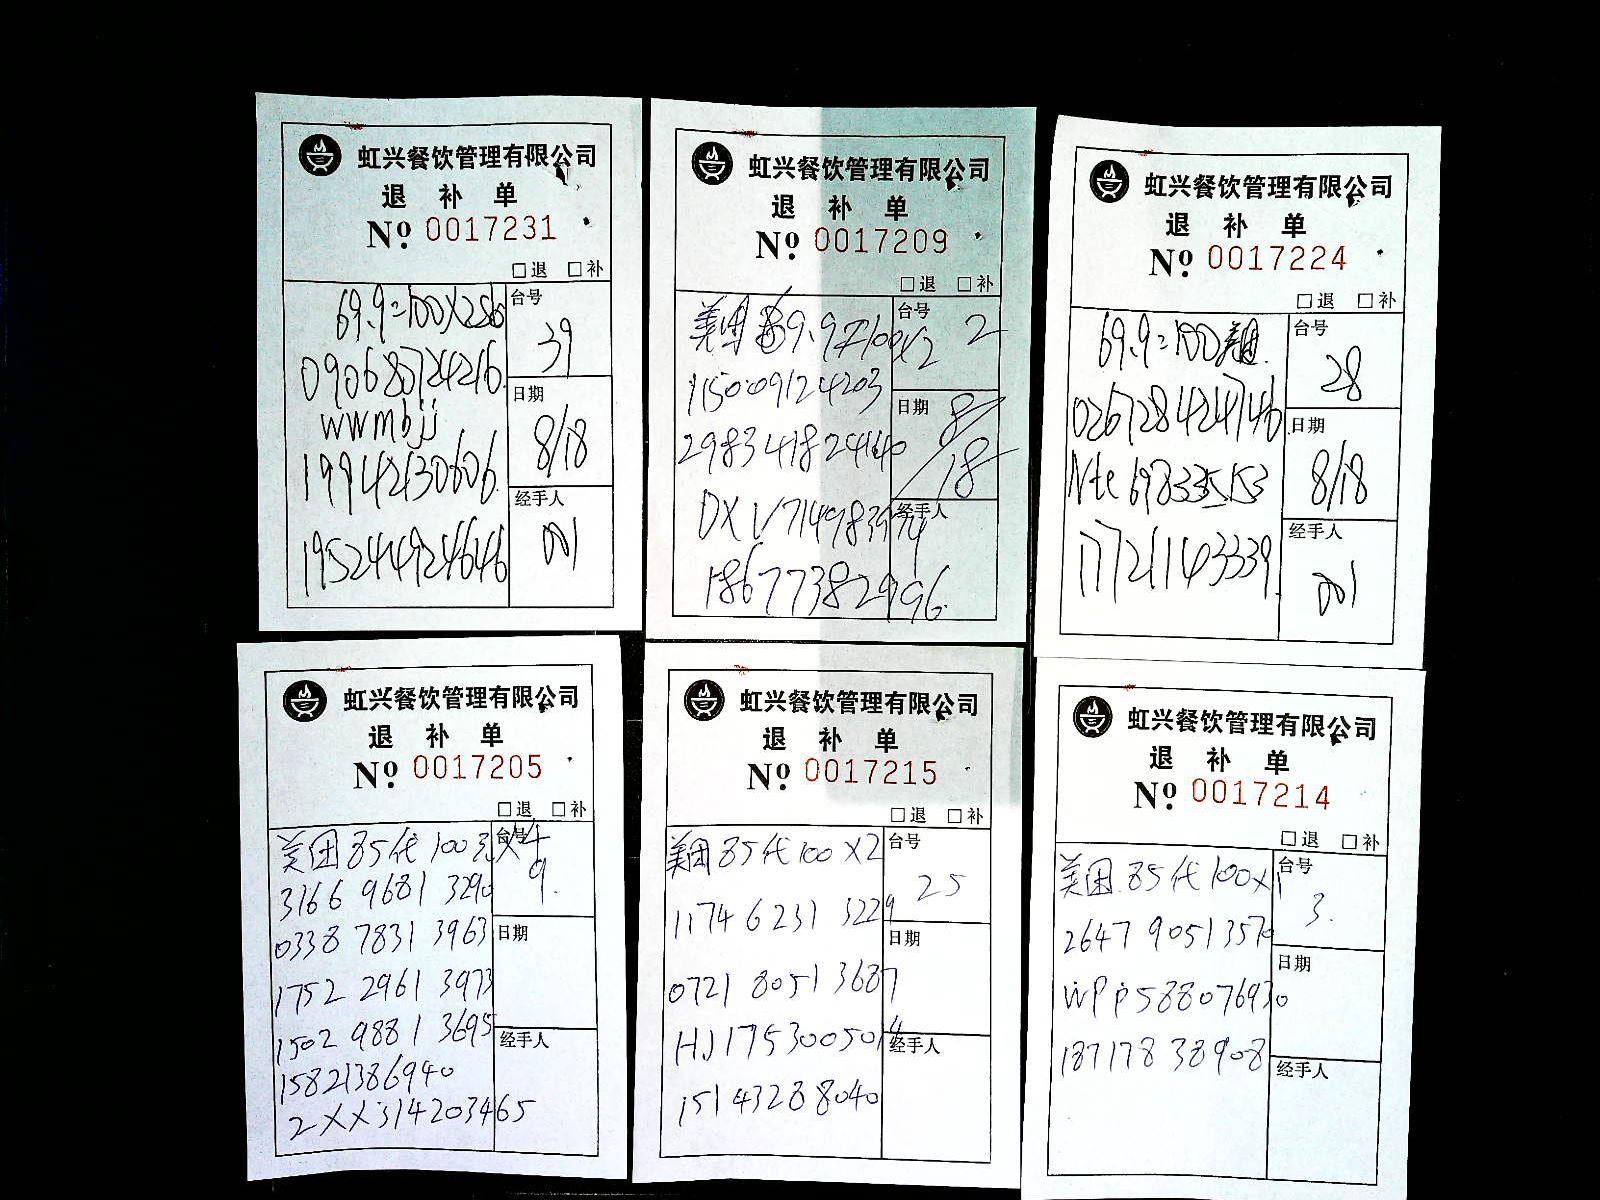 虹兴餐饮管理有限公司
退 补 单
№ 0017231
□退 □补
69.9=100X2
台号
39
090680724216
wwmbjj
日期
8/18
19942130606
经手人
001
195244924646
虹兴餐饮管理有限公司
退 补 单
№ 0017209
□退 □补
美团 69.9 100x2
台号
2
115009124203
日期
8/18
298341824160
经手人
18677382996
虹兴餐饮管理有限公司
退 补 单
№ 0017224
□退 □补
69.9=100美团
台号
28
026728424746
日期
8/18
Nte698335153
经手人
001
17721143339
虹兴餐饮管理有限公司
退 补 单
№ 0017205
□退 □补
美团 85代100元X4
台号
9.
3166 9681 3290
0338 7831 3963
日期
1752 2961 3973
1502 9881 3695
经手人
15821386940
2XX314203465
虹兴餐饮管理有限公司
退 补 单
№ 0017215
□退 □补
美团 85代100X2
台号
25
1174 6231 3229
日期
0721 8051 3687
HJ1753005014
经手人
15143288040
虹兴餐饮管理有限公司
退 补 单
№ 0017214
□退 □补
美团 85代100X1
台号
3.
2647 9051 3570
日期
WPP588076930
18717838908
经手人